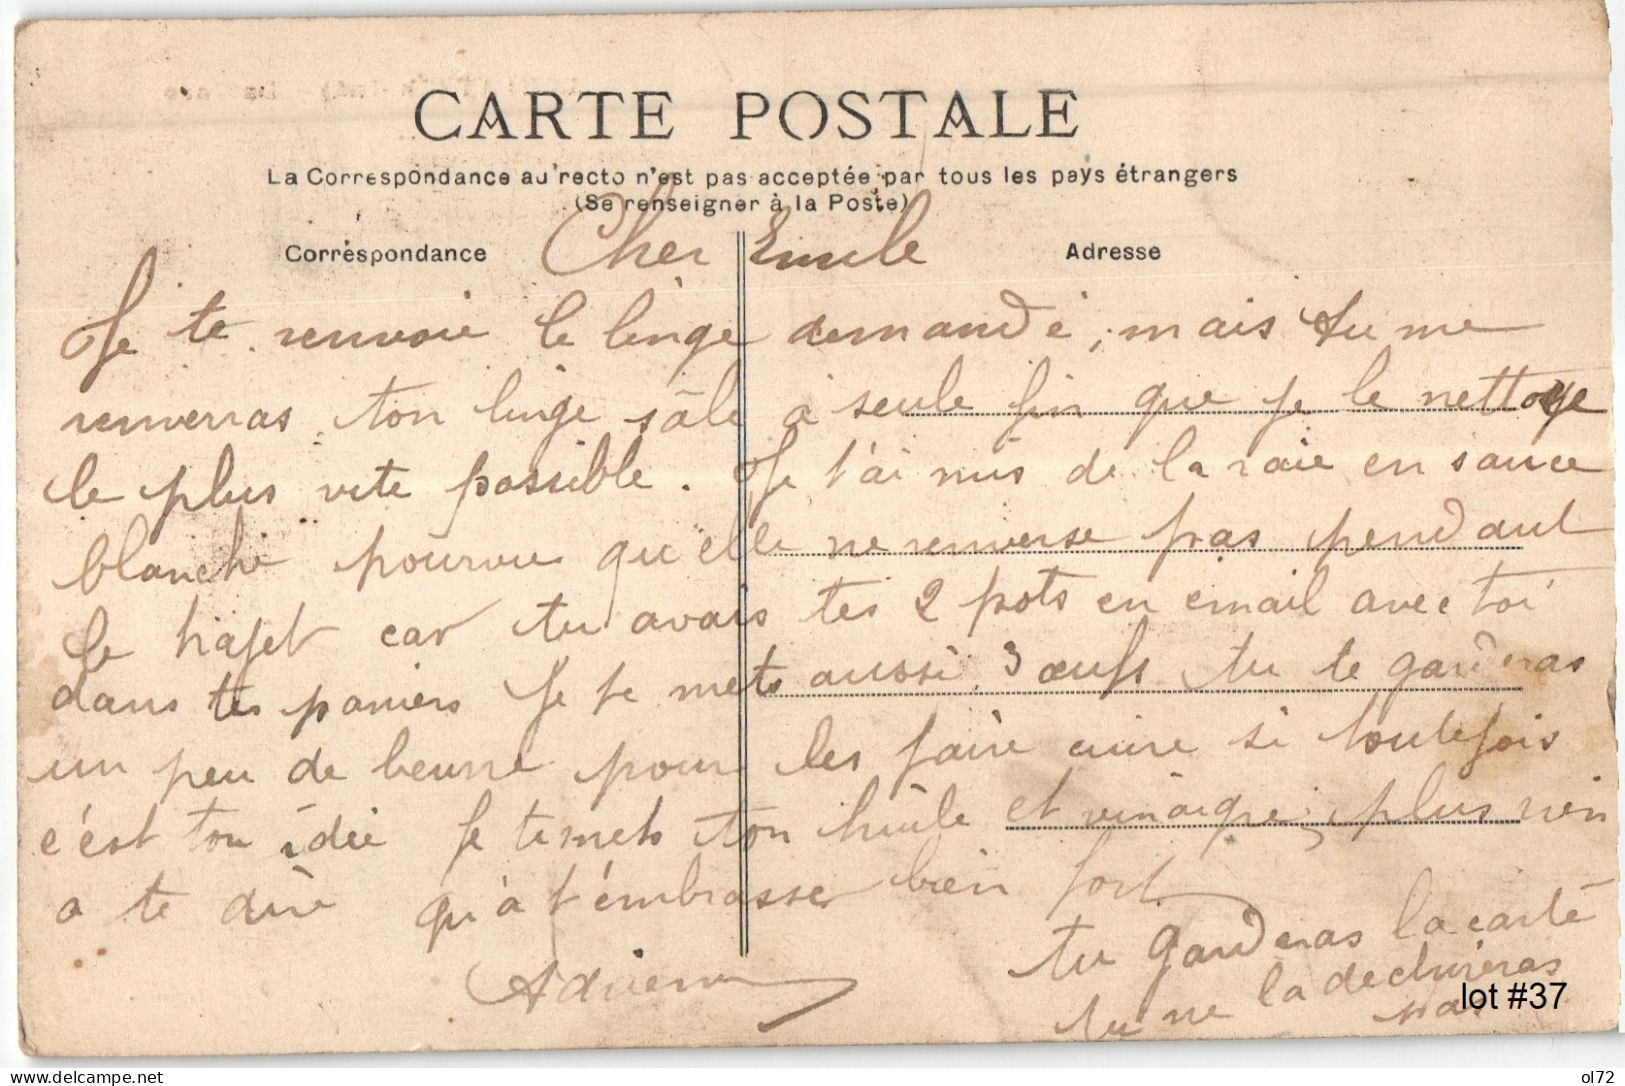 CARTE POSTALE
La Correspondance au recto n'est pas acceptée par tous les pays étrangers
(Se renseigner à la Poste)
Correspondance
Adresse
Cher Emile
Je te renvoie le linge demandé, mais tu me
renverras ton linge sâle a seule fin que je le nettoye
le plus vite possible. Je t'ai mis de la raie en sauce
blanche pourvu qu'elle ne renverse pas pendant
le trajet car tu avais tes 2 pots en email avec toi
dans tes paniers Je te mets aussi 3 œufs tu te garderas
un peu de beurre pour les faire cuire si toutefois
c'est ton idée Je te mets ton huile et vinaigre, plus rien
a te dire qu'à t'embrasser bien fort
Adrienne
tu garderas la carte
tu ne la dechireras
pas
lot #37
ol72